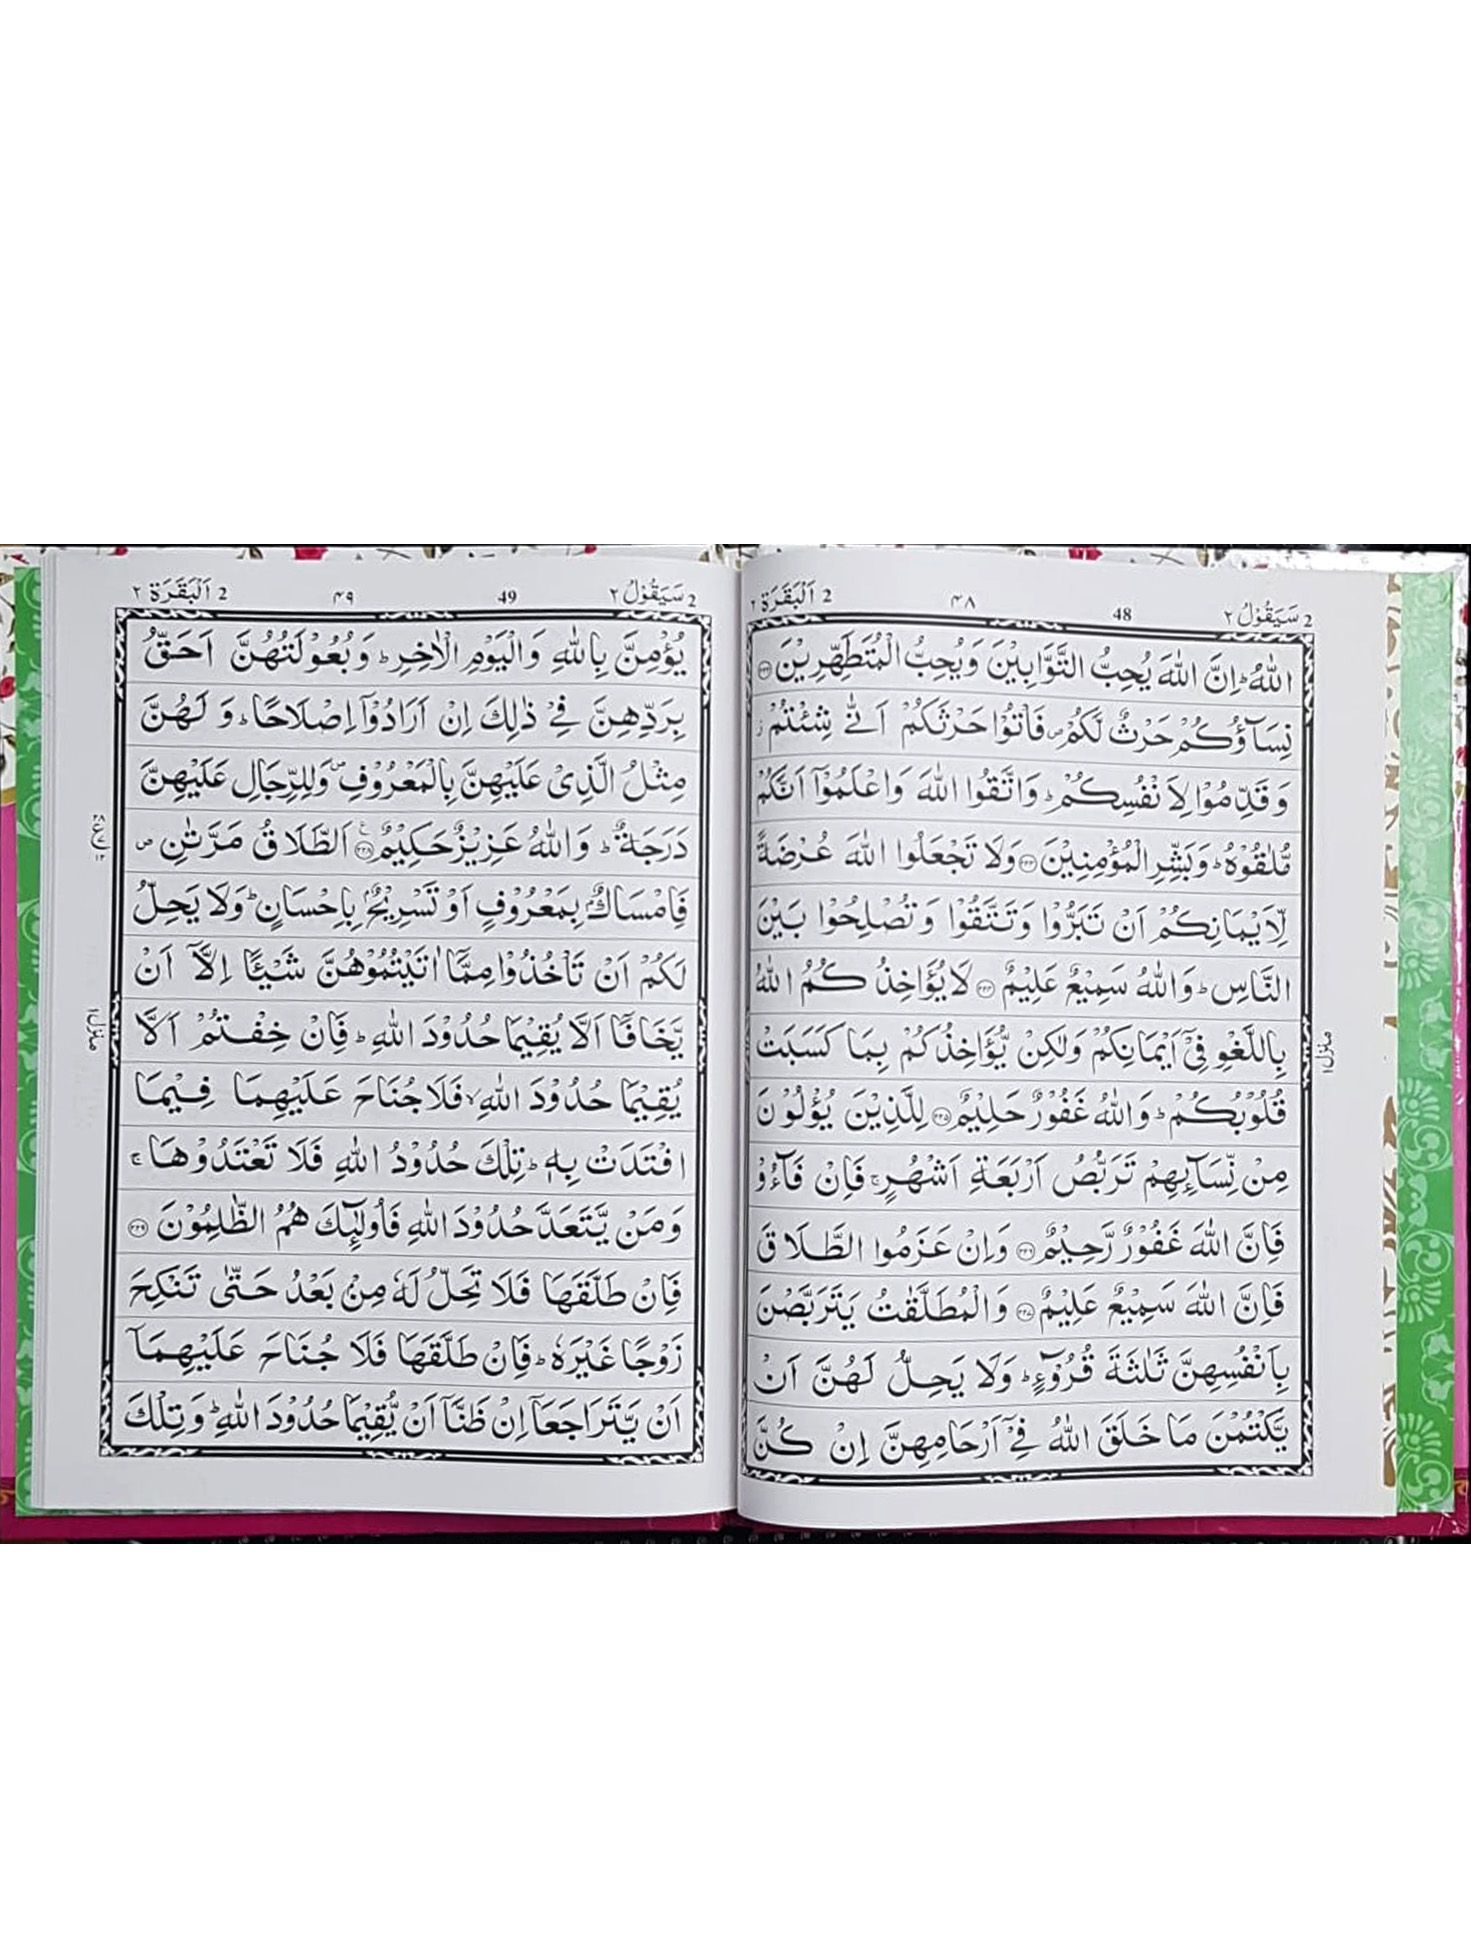 2 سَيَقُوْلُ ٢ 48 ۴۸ 2 اَلْبَقَرَة ٢
اللّٰهُ ؕ اِنَّ اللّٰهَ يُحِبُّ التَّوَّابِيْنَ وَيُحِبُّ الْمُتَطَهِّرِيْنَ ﴿۲۲۲﴾
نِسَآؤُكُمْ حَرْثٌ لَّكُمْ ۪ فَاْتُوْا حَرْثَكُمْ اَنّٰى شِئْتُمْ ؗ
وَقَدِّمُوْا لِاَنْفُسِكُمْ ؕ وَاتَّقُوا اللّٰهَ وَاعْلَمُوْٓا اَنَّكُمْ
مُّلٰقُوْهُ ؕ وَبَشِّرِ الْمُؤْمِنِيْنَ ﴿۲۲۳﴾ وَلَا تَجْعَلُوا اللّٰهَ عُرْضَةً
لِّاَيْمَانِكُمْ اَنْ تَبَرُّوْا وَتَتَّقُوْا وَتُصْلِحُوْا بَيْنَ
النَّاسِ ؕ وَاللّٰهُ سَمِيْعٌ عَلِيْمٌ ﴿۲۲۴﴾ لَا يُؤَاخِذُكُمُ اللّٰهُ
بِاللَّغْوِ فِيْٓ اَيْمَانِكُمْ وَلٰكِنْ يُّؤَاخِذُكُمْ بِمَا كَسَبَتْ
قُلُوْبُكُمْ ؕ وَاللّٰهُ غَفُوْرٌ حَلِيْمٌ ﴿۲۲۵﴾ لِلَّذِيْنَ يُؤْلُوْنَ
مِنْ نِّسَآئِهِمْ تَرَبُّصُ اَرْبَعَةِ اَشْهُرٍ ۚ فَاِنْ فَآءُوْ
فَاِنَّ اللّٰهَ غَفُوْرٌ رَّحِيْمٌ ﴿۲۲۶﴾ وَاِنْ عَزَمُوا الطَّلَاقَ
فَاِنَّ اللّٰهَ سَمِيْعٌ عَلِيْمٌ ﴿۲۲۷﴾ وَالْمُطَلَّقٰتُ يَتَرَبَّصْنَ
بِاَنْفُسِهِنَّ ثَلٰثَةَ قُرُوْٓءٍ ؕ وَلَا يَحِلُّ لَهُنَّ اَنْ
يَّكْتُمْنَ مَا خَلَقَ اللّٰهُ فِيْٓ اَرْحَامِهِنَّ اِنْ كُنَّ
منزل ١
2 سَيَقُوْلُ ٢ 49 ۴۹ 2 اَلْبَقَرَة ٢
يُؤْمِنَّ بِاللّٰهِ وَالْيَوْمِ الْاٰخِرِ ؕ وَبُعُوْلَتُهُنَّ اَحَقُّ
بِرَدِّهِنَّ فِيْ ذٰلِكَ اِنْ اَرَادُوْٓا اِصْلَاحًا ؕ وَلَهُنَّ
مِثْلُ الَّذِيْ عَلَيْهِنَّ بِالْمَعْرُوْفِ ۪ وَلِلرِّجَالِ عَلَيْهِنَّ
دَرَجَةٌ ؕ وَاللّٰهُ عَزِيْزٌ حَكِيْمٌ ﴿۲۲۸﴾ اَلطَّلَاقُ مَرَّتٰنِ ۪
فَاِمْسَاكٌۢ بِمَعْرُوْفٍ اَوْ تَسْرِيْحٌۢ بِاِحْسَانٍ ؕ وَلَا يَحِلُّ
لَكُمْ اَنْ تَاْخُذُوْا مِمَّآ اٰتَيْتُمُوْهُنَّ شَيْـًٔا اِلَّآ اَنْ
يَّخَافَآ اَلَّا يُقِيْمَا حُدُوْدَ اللّٰهِ ؕ فَاِنْ خِفْتُمْ اَلَّا
يُقِيْمَا حُدُوْدَ اللّٰهِ ۙ فَلَا جُنَاحَ عَلَيْهِمَا فِيْمَا
افْتَدَتْ بِهٖ ؕ تِلْكَ حُدُوْدُ اللّٰهِ فَلَا تَعْتَدُوْهَا ۚ
وَمَنْ يَّتَعَدَّ حُدُوْدَ اللّٰهِ فَاُولٰٓئِكَ هُمُ الظّٰلِمُوْنَ ﴿۲۲۹﴾
فَاِنْ طَلَّقَهَا فَلَا تَحِلُّ لَهٗ مِنْۢ بَعْدُ حَتّٰى تَنْكِحَ
زَوْجًا غَيْرَهٗ ؕ فَاِنْ طَلَّقَهَا فَلَا جُنَاحَ عَلَيْهِمَآ
اَنْ يَّتَرَاجَعَآ اِنْ ظَنَّآ اَنْ يُّقِيْمَا حُدُوْدَ اللّٰهِ ؕ وَتِلْكَ
منزل ١